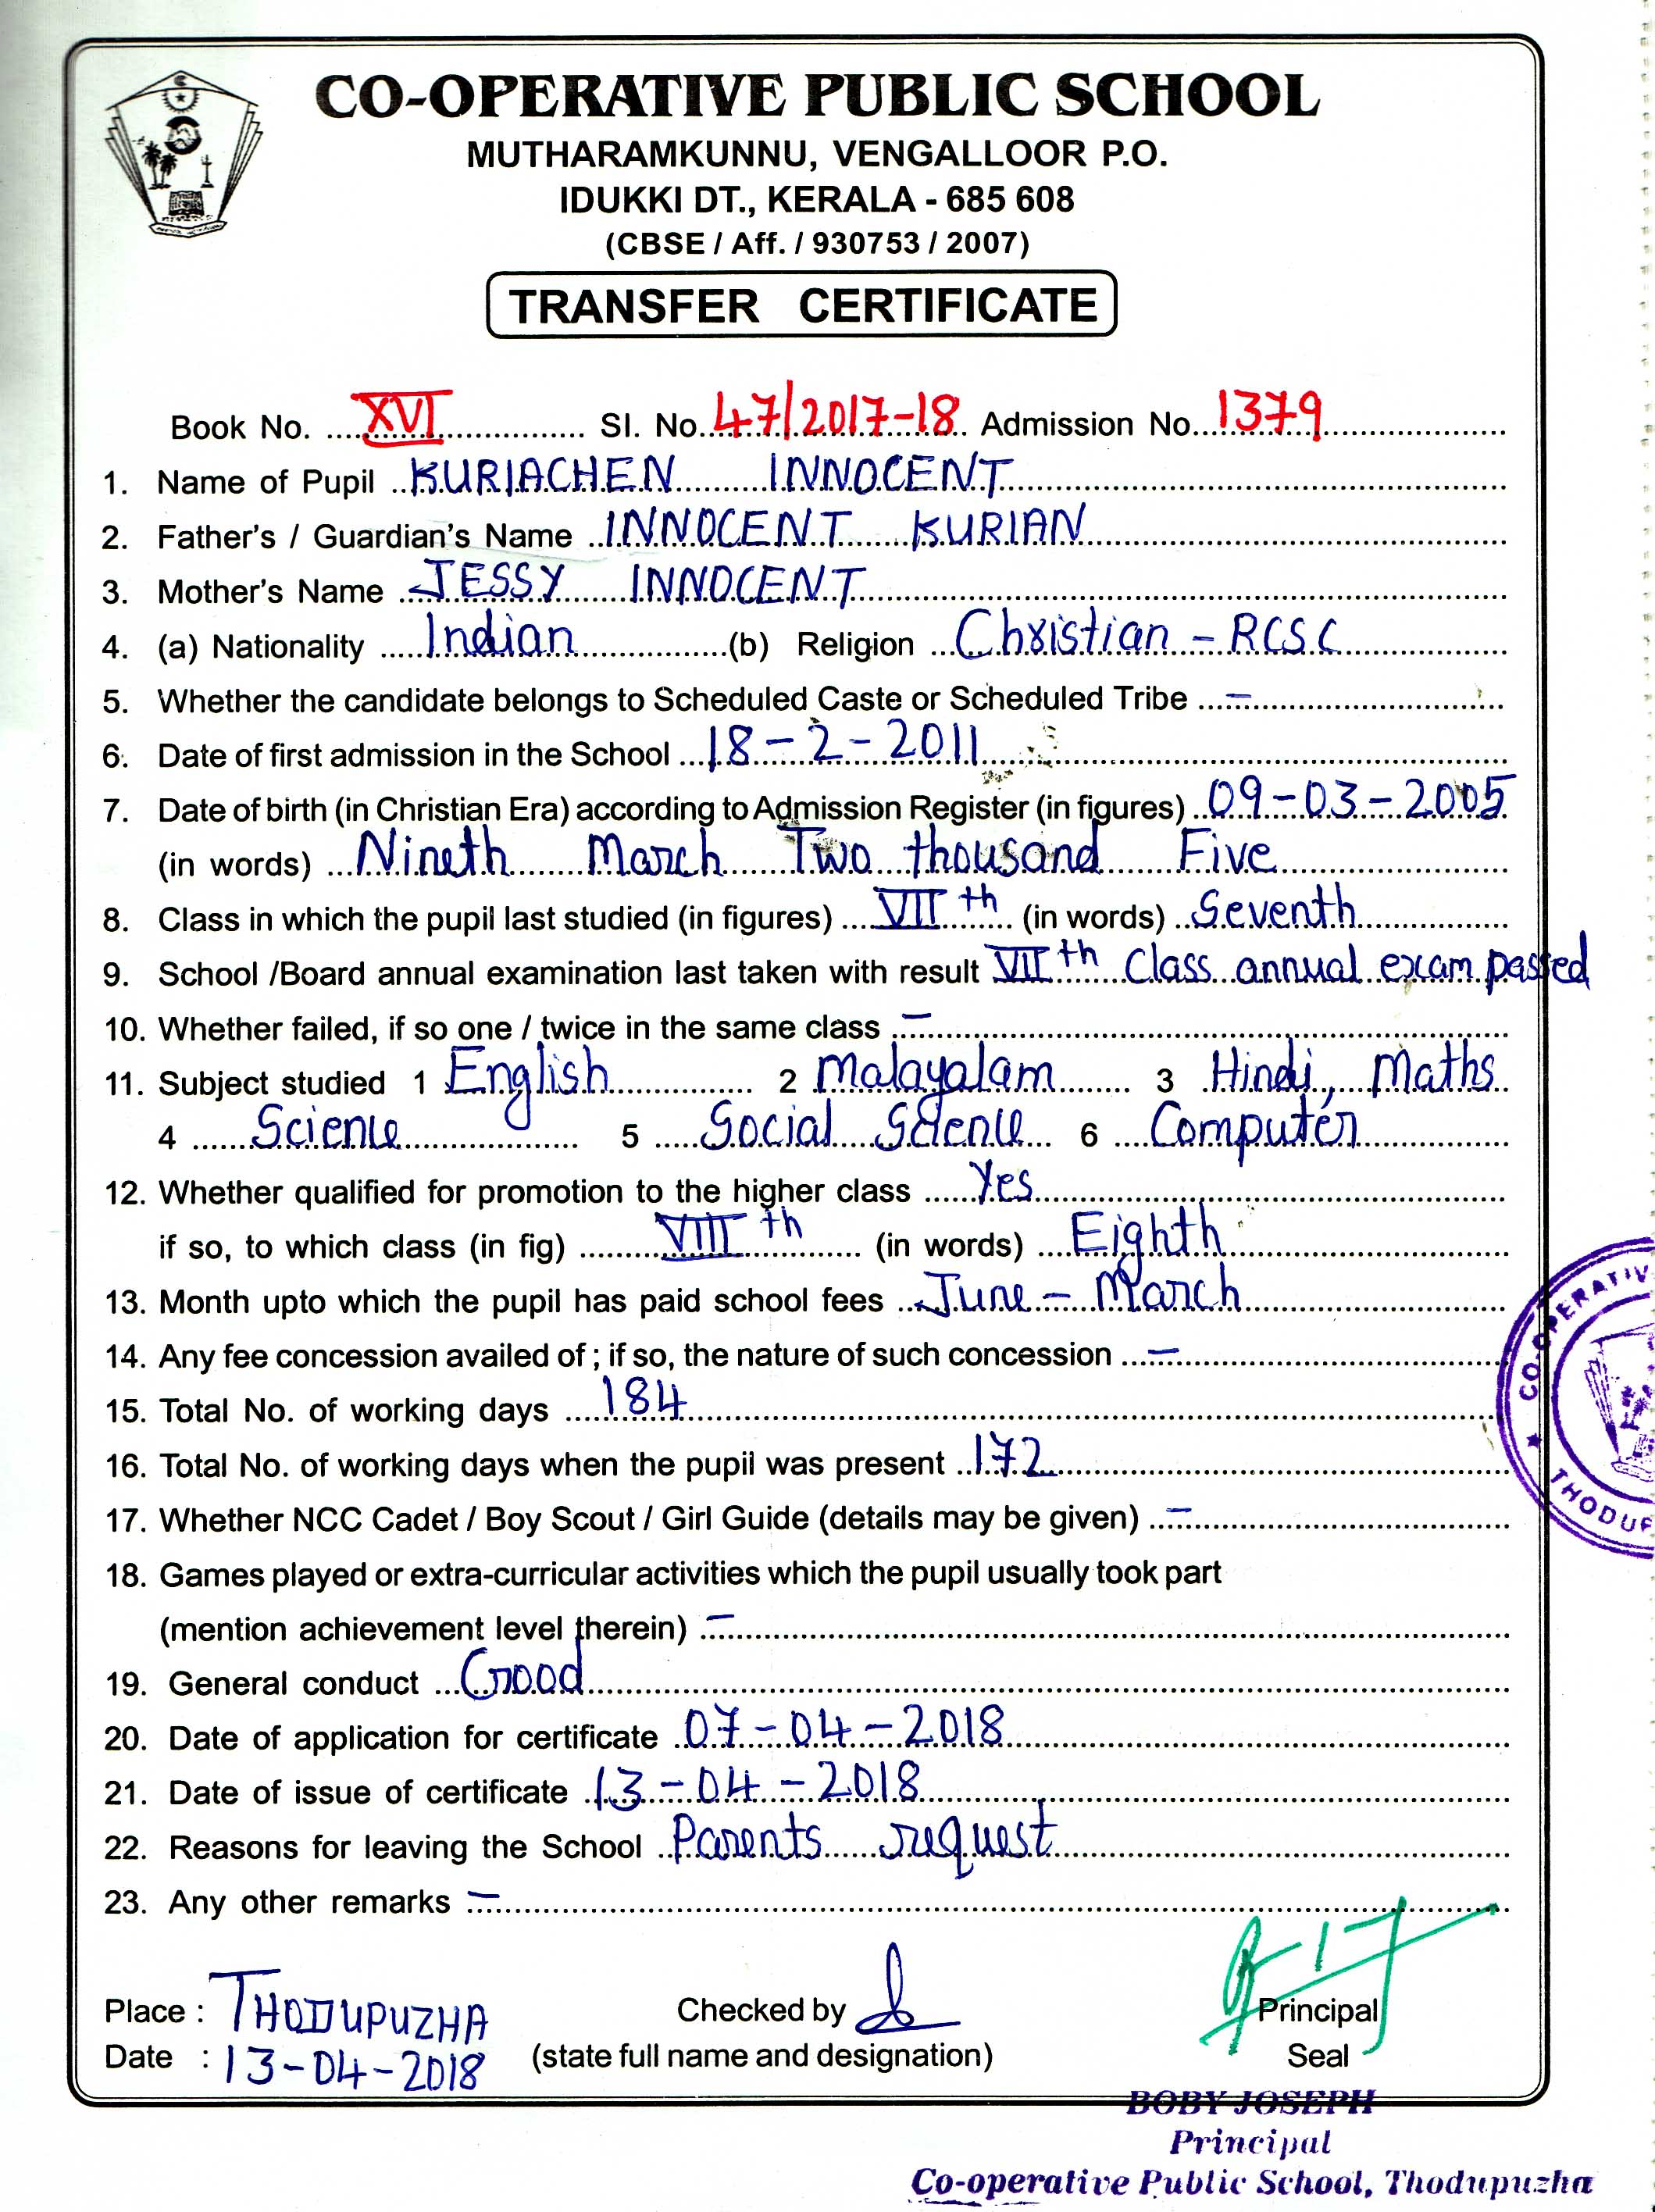 CO-OPERATIVE PUBLIC SCHOOL
MUTHARAMKUNNU, VENGALLOOR P.O.
IDUKKI DT., KERALA - 685 608
(CBSE / Aff. / 930753 / 2007)
TRANSFER CERTIFICATE
Book No. XVI Sl. No. 47/2017-18 Admission No. 1379
1. Name of Pupil KURIACHEN INNOCENT
2. Father's / Guardian's Name INNOCENT KURIAN
3. Mother's Name JESSY INNOCENT
4. (a) Nationality Indian (b) Religion Christian - RCSC
5. Whether the candidate belongs to Scheduled Caste or Scheduled Tribe -
6. Date of first admission in the School 18-2-2011
7. Date of birth (in Christian Era) according to Admission Register (in figures) 09-03-2005
(in words) Nineth March Two thousand Five
8. Class in which the pupil last studied (in figures) VIIth (in words) Seventh
9. School /Board annual examination last taken with result VIIth Class annual exam passed
10. Whether failed, if so one / twice in the same class -
11. Subject studied 1 English 2 Malayalam 3 Hindi, Maths
4 Science 5 Social Science 6 Computer
12. Whether qualified for promotion to the higher class Yes
if so, to which class (in fig) VIIIth (in words) Eighth
13. Month upto which the pupil has paid school fees June - March
14. Any fee concession availed of ; if so, the nature of such concession -
15. Total No. of working days 184
16. Total No. of working days when the pupil was present 172
17. Whether NCC Cadet / Boy Scout / Girl Guide (details may be given) -
18. Games played or extra-curricular activities which the pupil usually took part
(mention achievement level therein) -
19. General conduct Good
20. Date of application for certificate 07-04-2018
21. Date of issue of certificate 13-04-2018
22. Reasons for leaving the School Parents request
23. Any other remarks -
Place : THODUPUZHA Checked by Principal
Date : 13-04-2018 (state full name and designation) Seal
CO-OPERATIV
THODUP
BOBY JOSEPH
Principal
Co-operative Public School, Thodupuzha